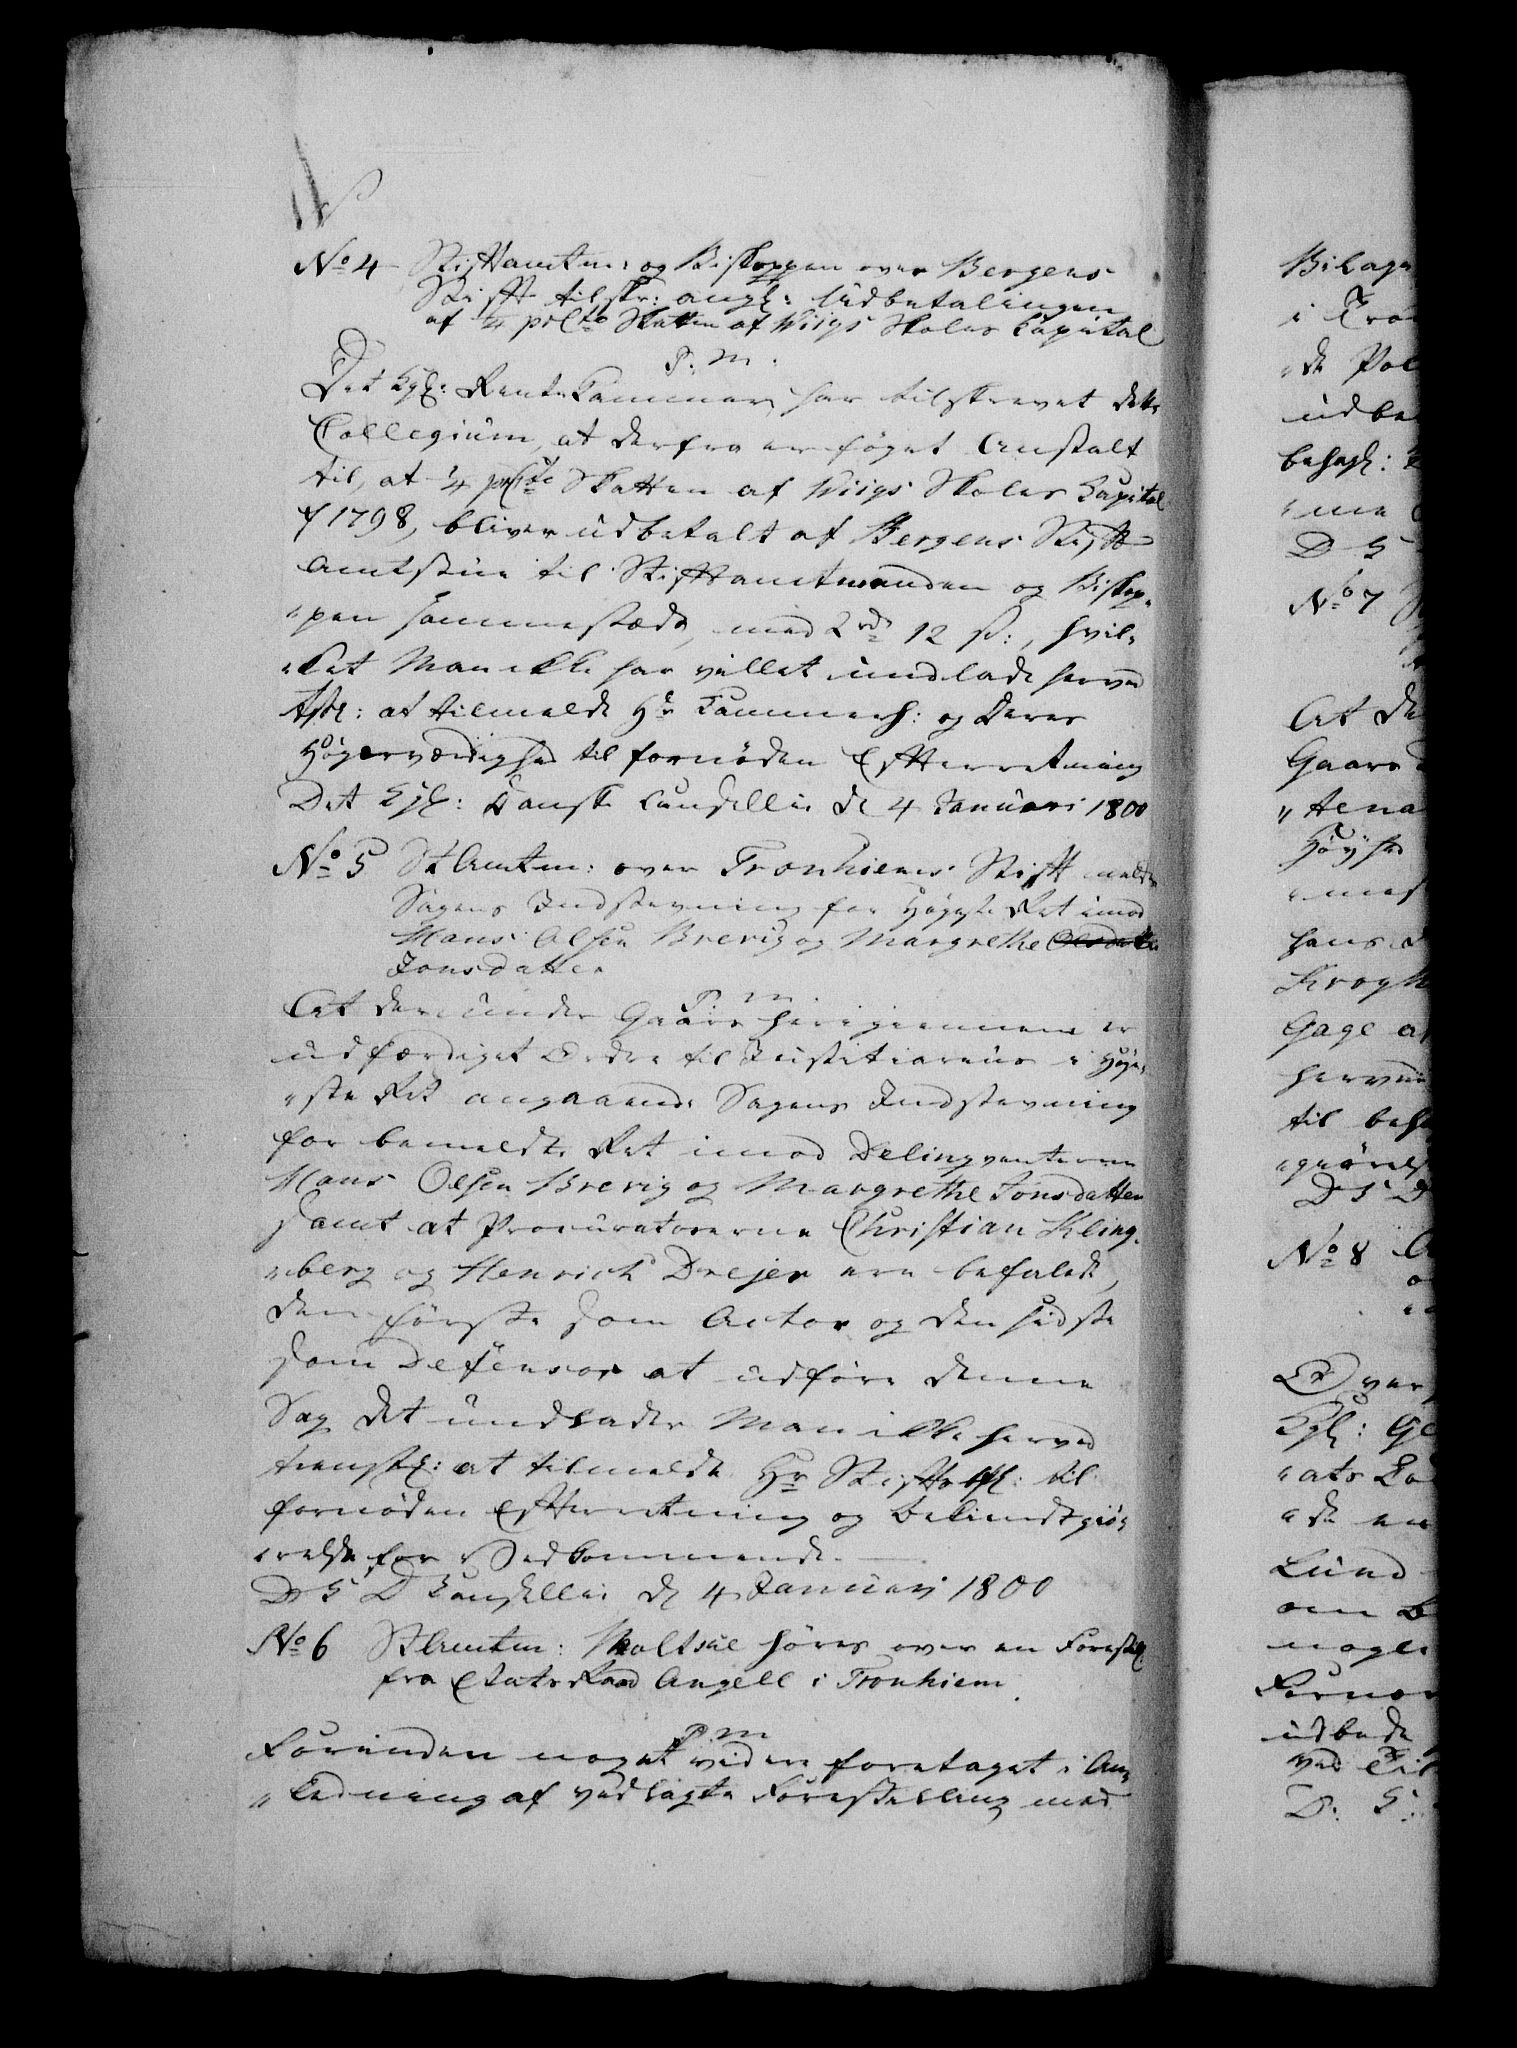 No 4 Stiftamtm: og Biskoppen over Bergens
Stift tilskr: angl: Udbetalingen
af ¼ prCto Skatten af Wiigs Skoles Capital
P. M.
Det Kgl: Rentekammer har tilskrevet dette
Collegium, at derfra er føyet Anstalt
til, at ¼ prCto Skatten af Wiigs Skoles Capital
f 1798, bliver udbetalt af Bergens Stift-
amtstue til Stiftamtmanden og Biskop-
pen sammestæds, med 2 rd 12 s:, hvil-
ket Man ikke har villet undlade herved
tstl: at tilmelde Hr Kammerh: og Deres
Høyærværdighed til fornøden Efterretning
Det Kgl: Danske Cancellie d 4 Januari 1800
No 5 StAmtm: over Tronhiems Stift meldes
Sagens Indstevning for Høyeste Ret imod
Hans Olsen Brevig og Margrethe
Jonsdatter
P. M.
At der under Gaars herigiennem er
udfærdiget Ordre til Justitiarius i Høye-
ste Ret angaaende Sagens Indstevning
for bemeldte Ret imod Delinqventerne
Hans Olsen Brevig og Margrethe Jonsdatter
samt at Procuratorerne Christian Kling-
berg og Henrich Drejer ere befalede,
den første som Actor og den sidste
som Defensor at udføre denne
Sag det undlader Man ikke herved
tienstl: at tilmelde Hr Stiftsbfl: til
fornøden Efterretning og Bekiendtgiø-
relse for Vedkommende.
D K D Cancellie d 4 Januari 1800
No 6 StAmtm: Moltke høres over en Forestl:
fra EtatsRaad Angell i Tronhiem.
P. M
Forinden noget videre foretaget i An-
ledning af vedlagte Forestilling med
Bilage
i Tro
de Pol
udbe
behagl:
me
D K
No 7
At de
Gaars
tena
Høyhed
mes
hans
Krogh
Gage a
herved
til beh
giørels
D K D
No 8
Over
Kgl: Ge
ats
de en
Lund
om
nogle
Fornø
udbede
ved Til
D: K: